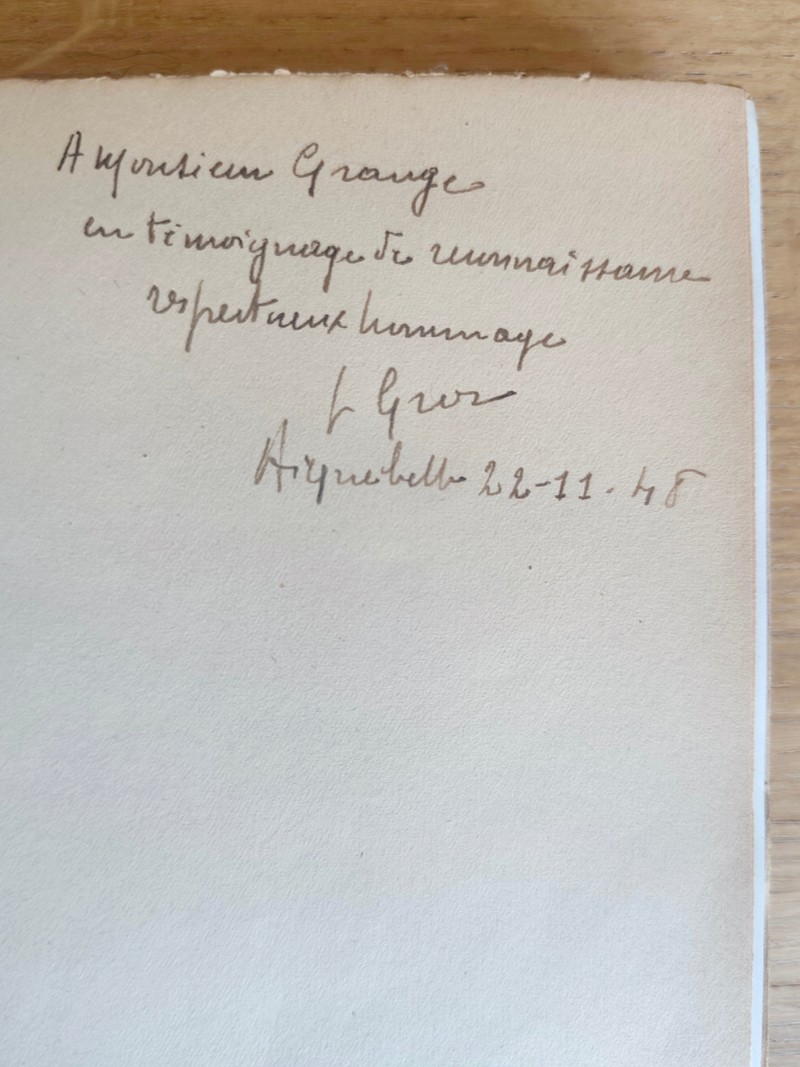 A Monsieur Grange
en témoignage de reconnaissance
respectueux hommage
L Gros
Aiguebelle 22-11-48